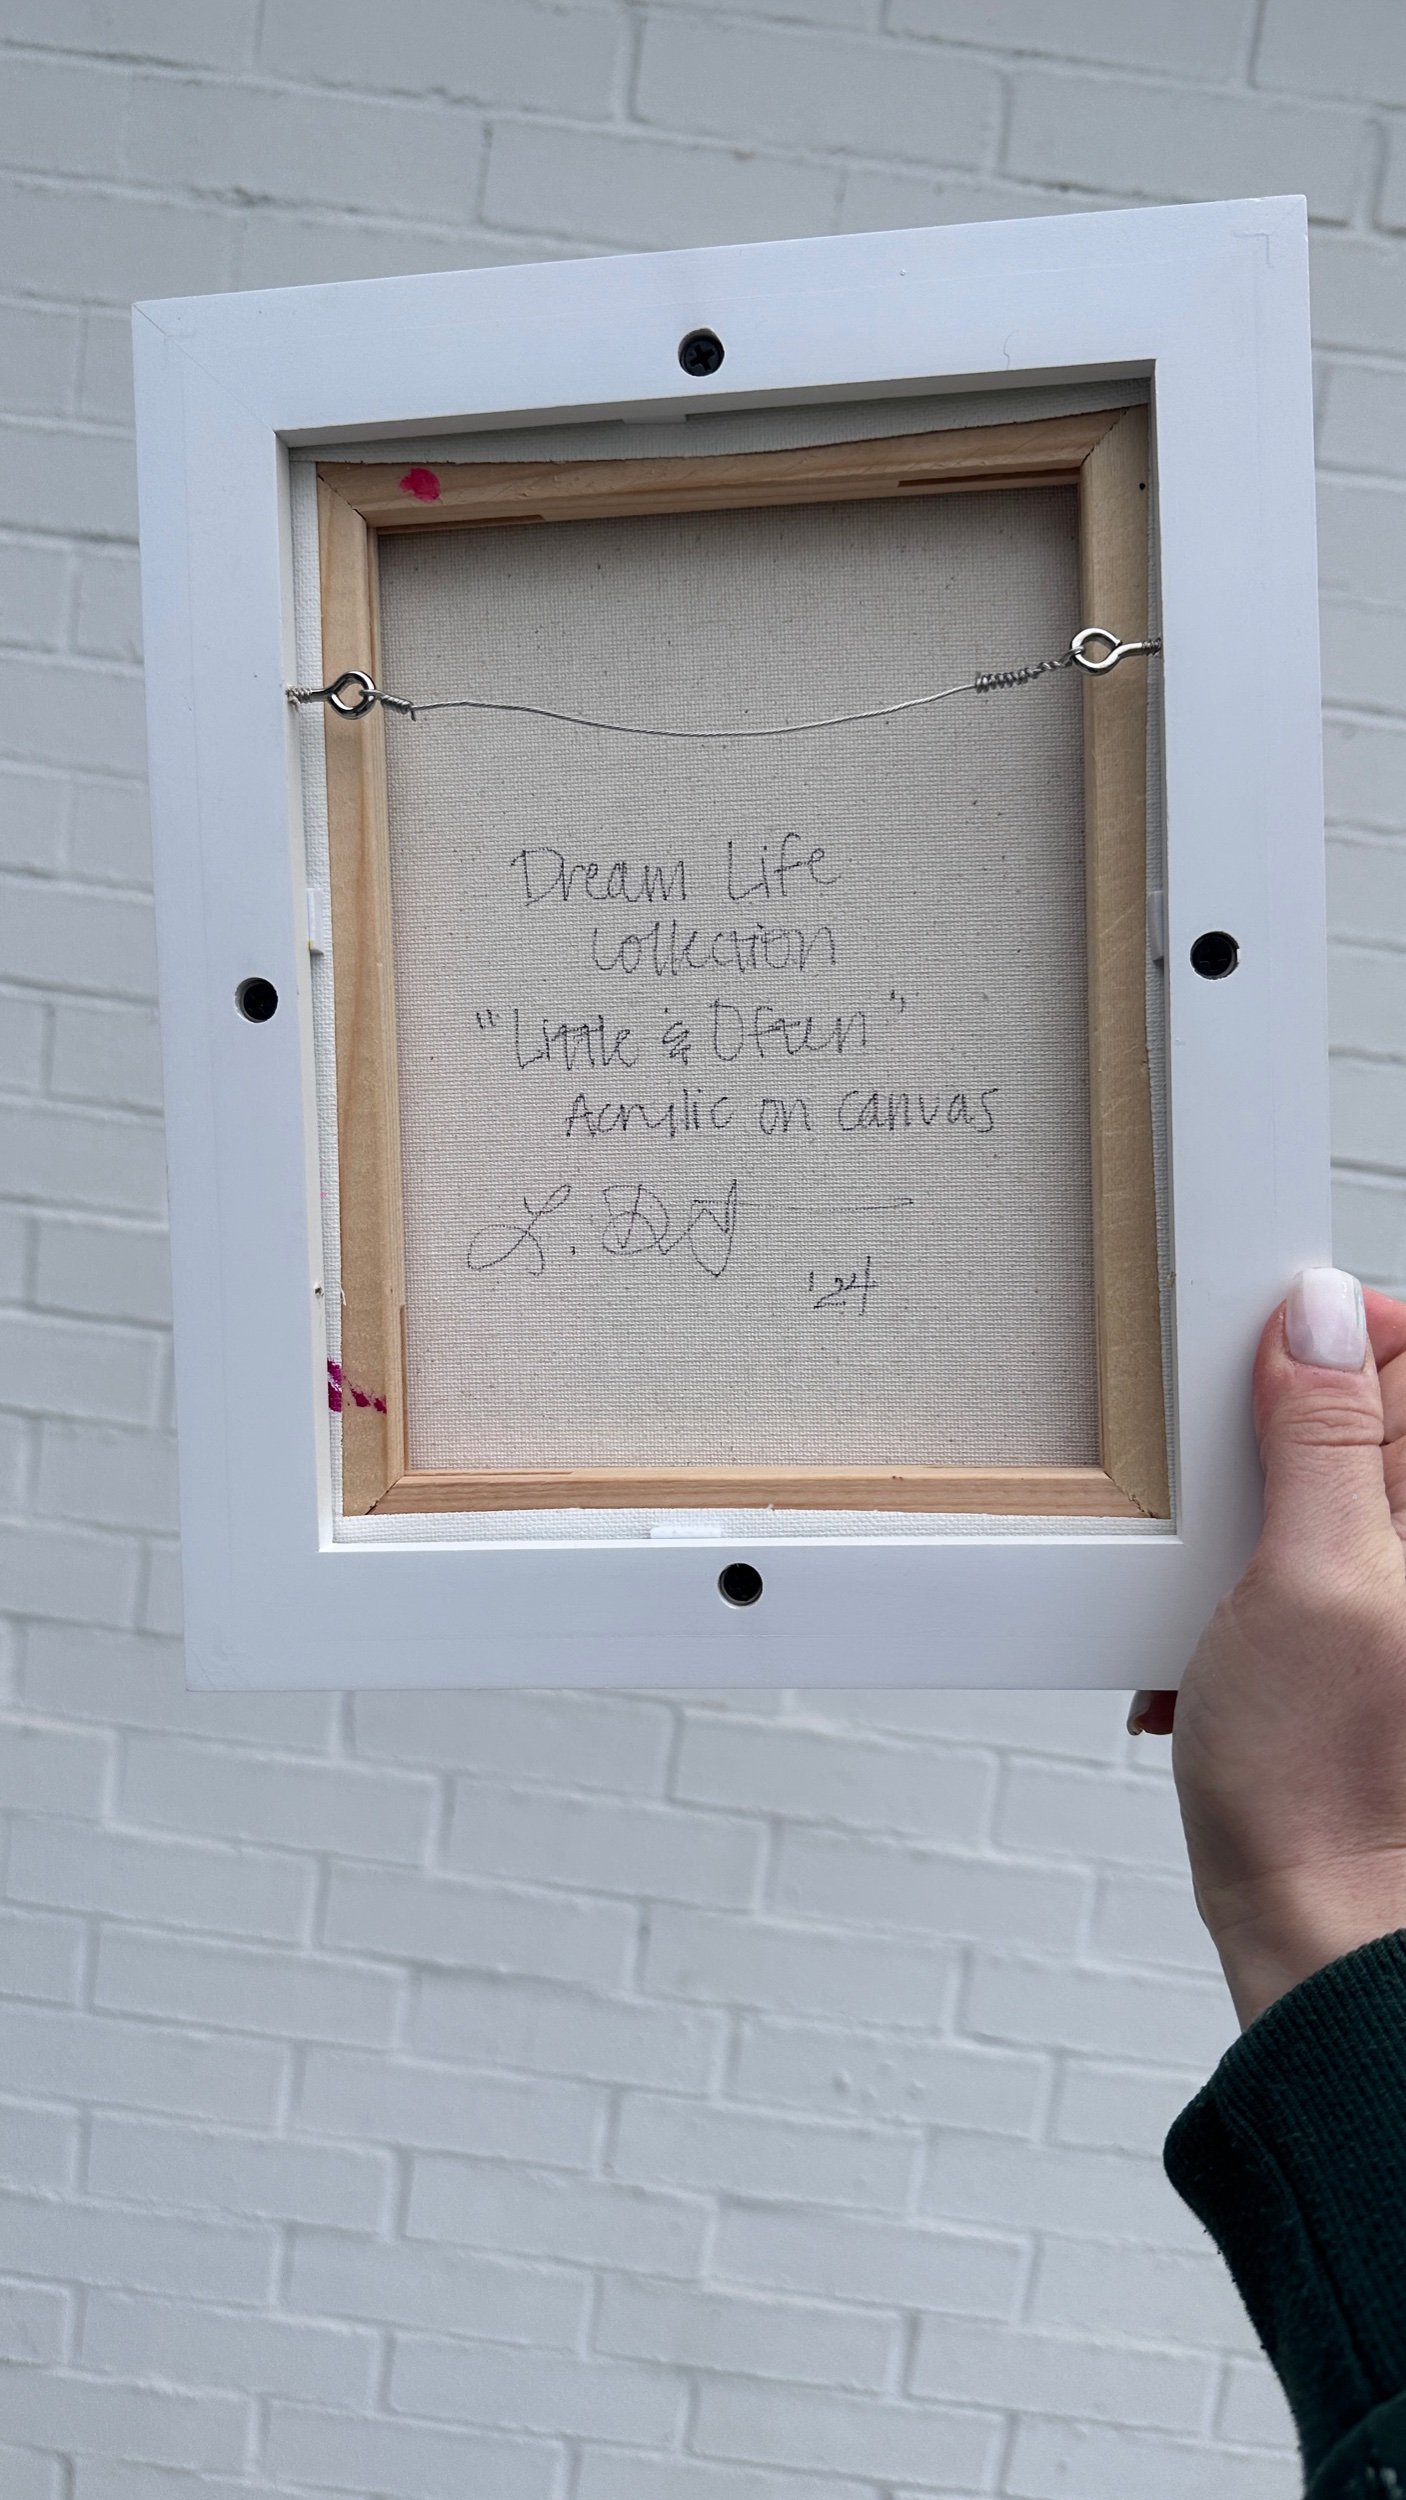 Dream Life
Collection
"Little & Often"
Acrylic on canvas
L.
'24